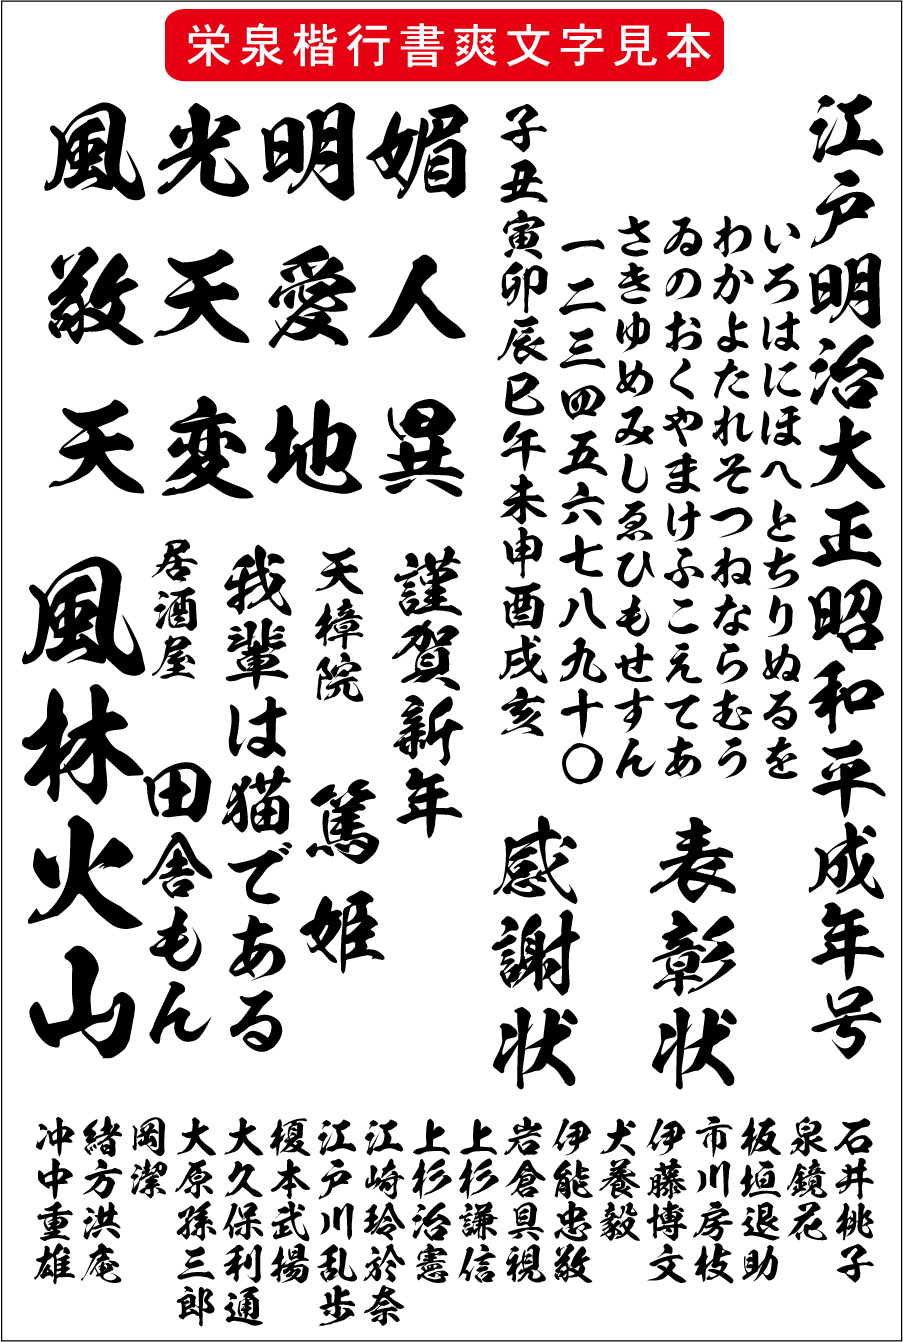 栄泉楷行書爽文字見本
江戸明治大正昭和平成年号
いろはにほへとちりぬるを
わかよたれそつねならむう
ゐのおくやまけふこえてあ
さきゆめみしゑひもせすん
一二三四五六七八九十〇
子丑寅卯辰巳午未申酉戌亥
表彰状
感謝状
風光明媚
敬天愛人
天変地異
謹賀新年
天樟院 篤姫
我輩は猫である
居酒屋
田舎もん
風林火山
石井桃子
泉鏡花
板垣退助
市川房枝
伊藤博文
犬養毅
伊能忠敬
岩倉具視
上杉謙信
上杉治憲
江崎玲於奈
江戸川乱歩
榎本武揚
大久保利通
大原孫三郎
岡潔
緒方洪庵
冲中重雄